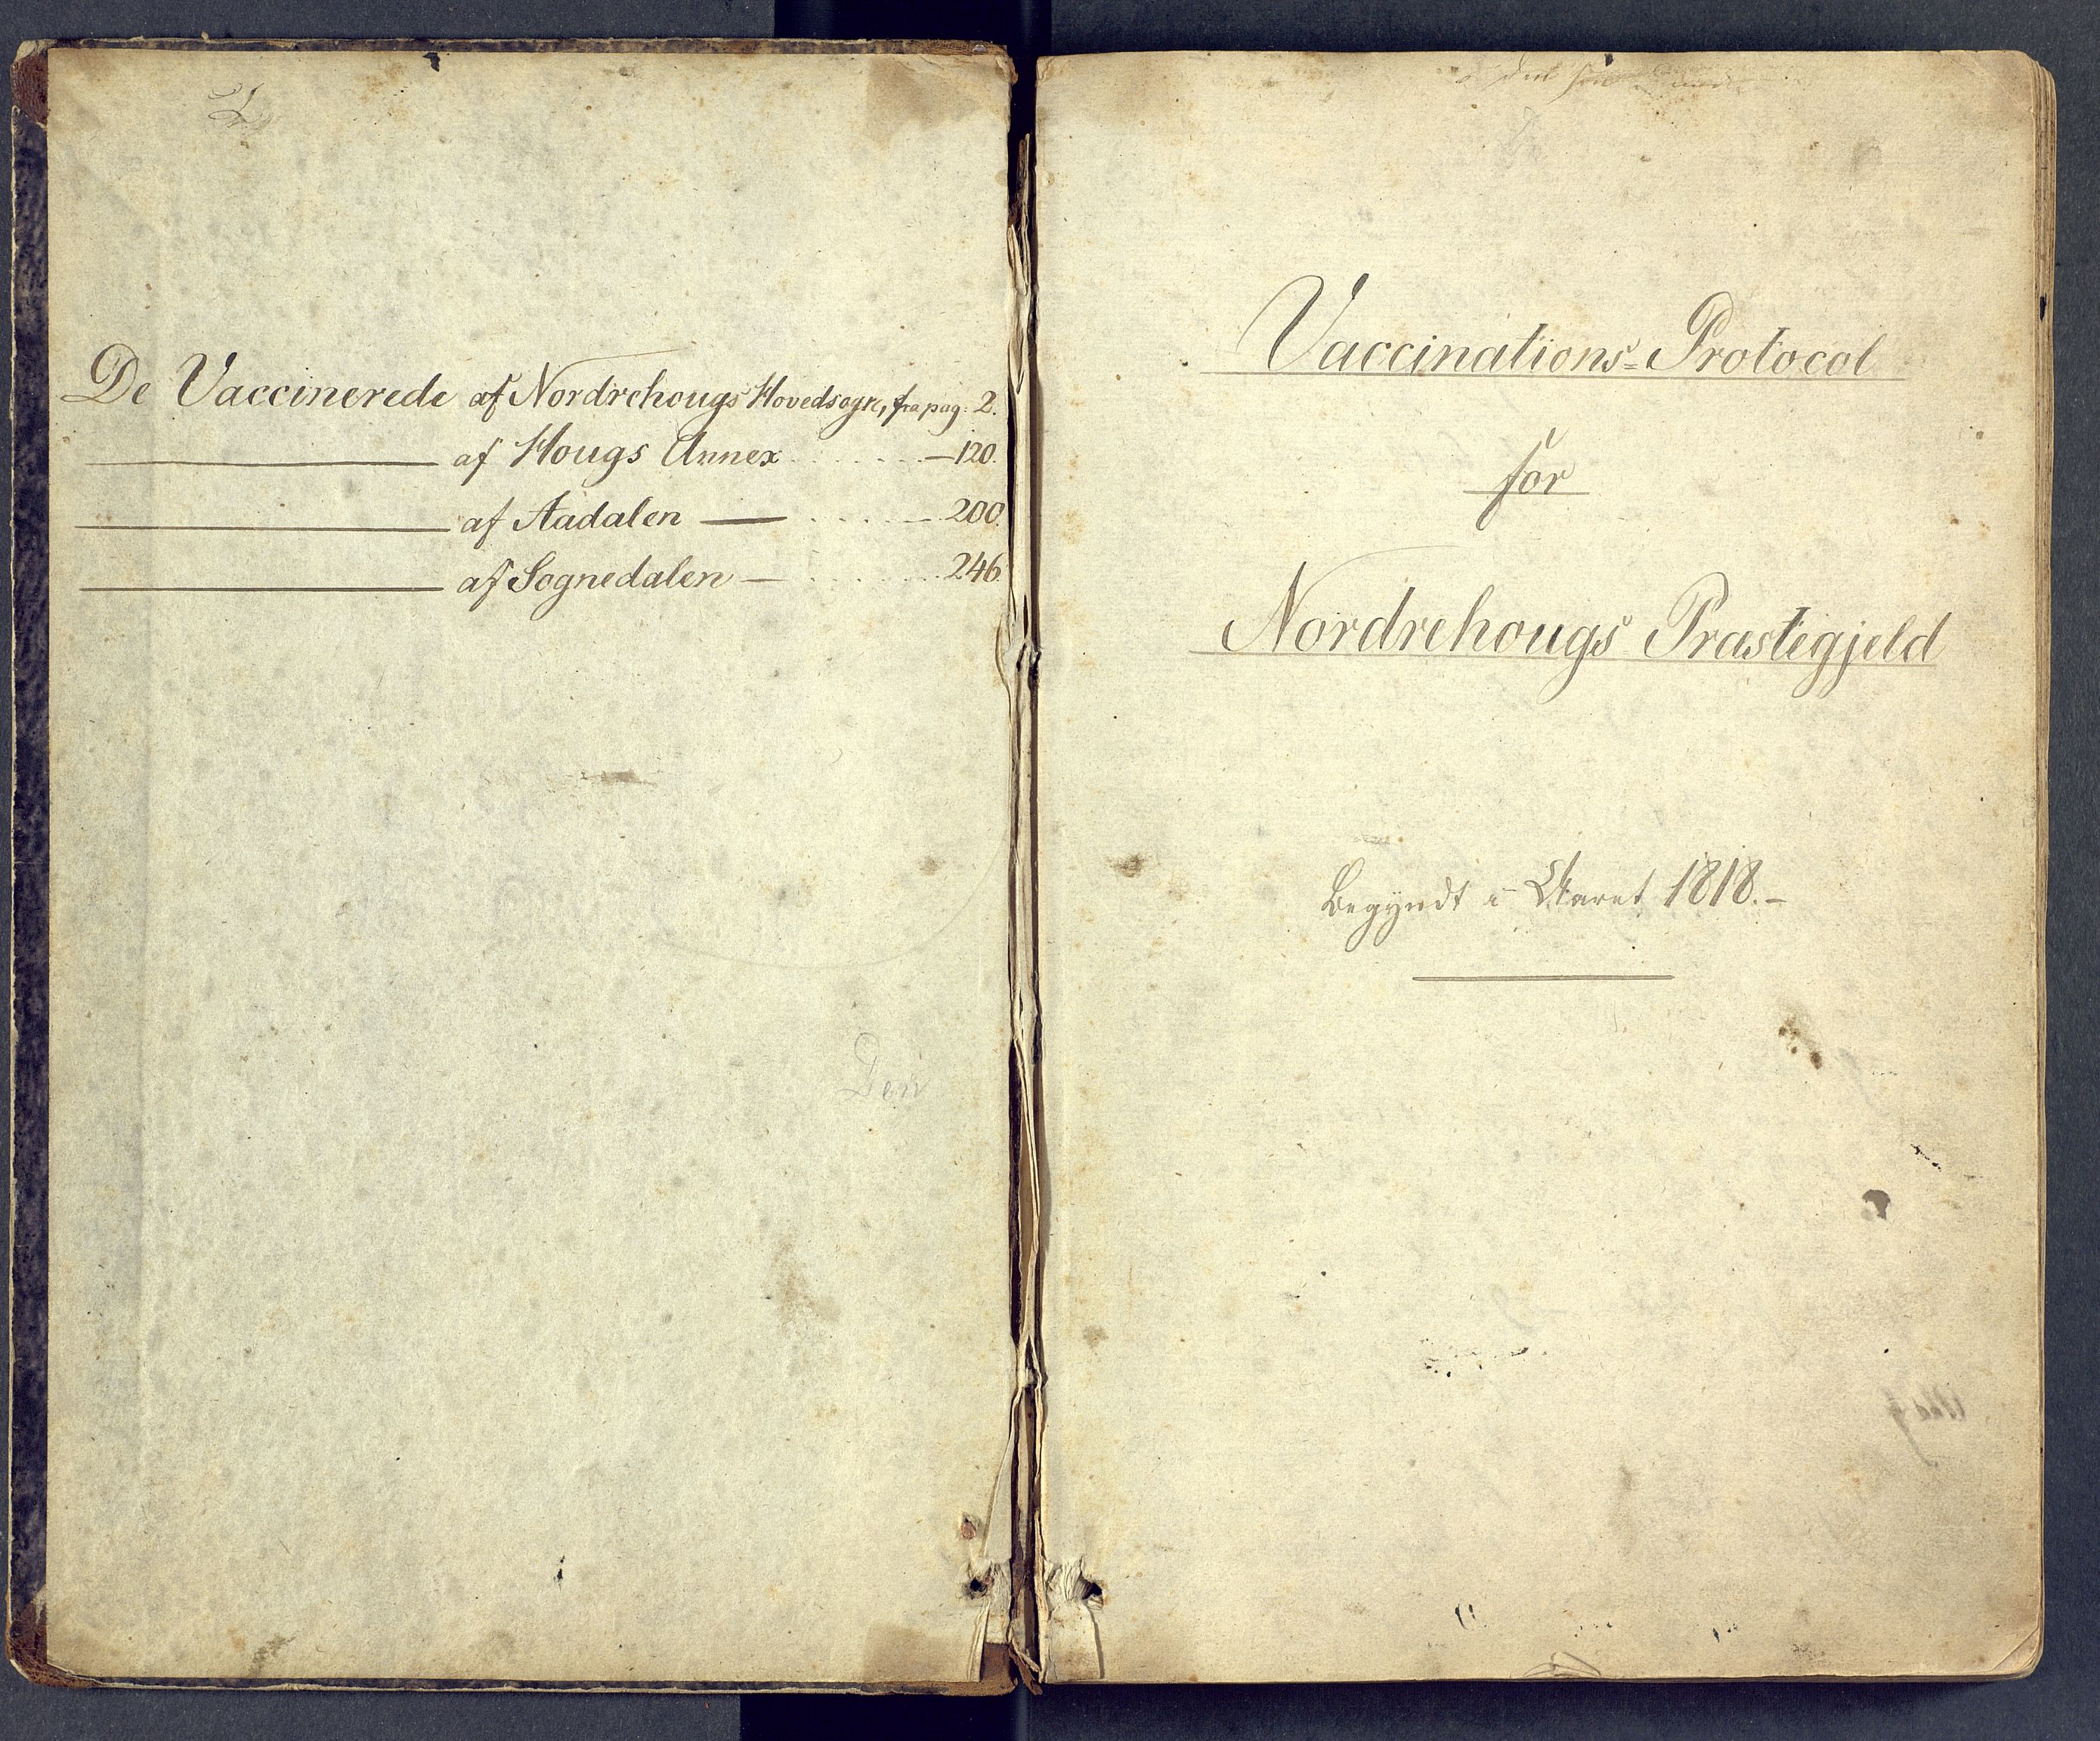 De Vaccinerede af Nordrehougs Hovedsogn, fra pag: 2.
af Hougs Annex . . . . . . — 120.
af Aadalen — . . . . — 200.
af Sognedalen — . . . . . . . 246.
Den
Vaccinations=Protocol
for
Nordrehougs Præstegjeld
Begyndt i Aaret 1818.-